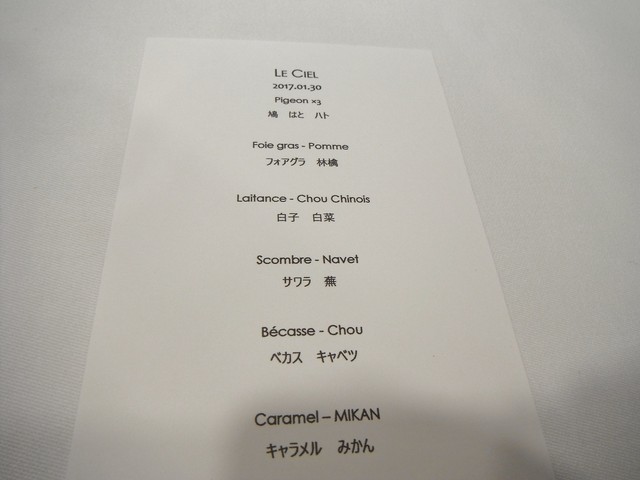 LE CIEL
2017.01.30
Pigeon ×3
鳩 はと ハト
Foie gras - Pomme
フォアグラ 林檎
Laitance - Chou Chinois
白子 白菜
Scombre - Navet
サワラ 蕪
Bécasse - Chou
ベカス キャベツ
Caramel – MIKAN
キャラメル みかん